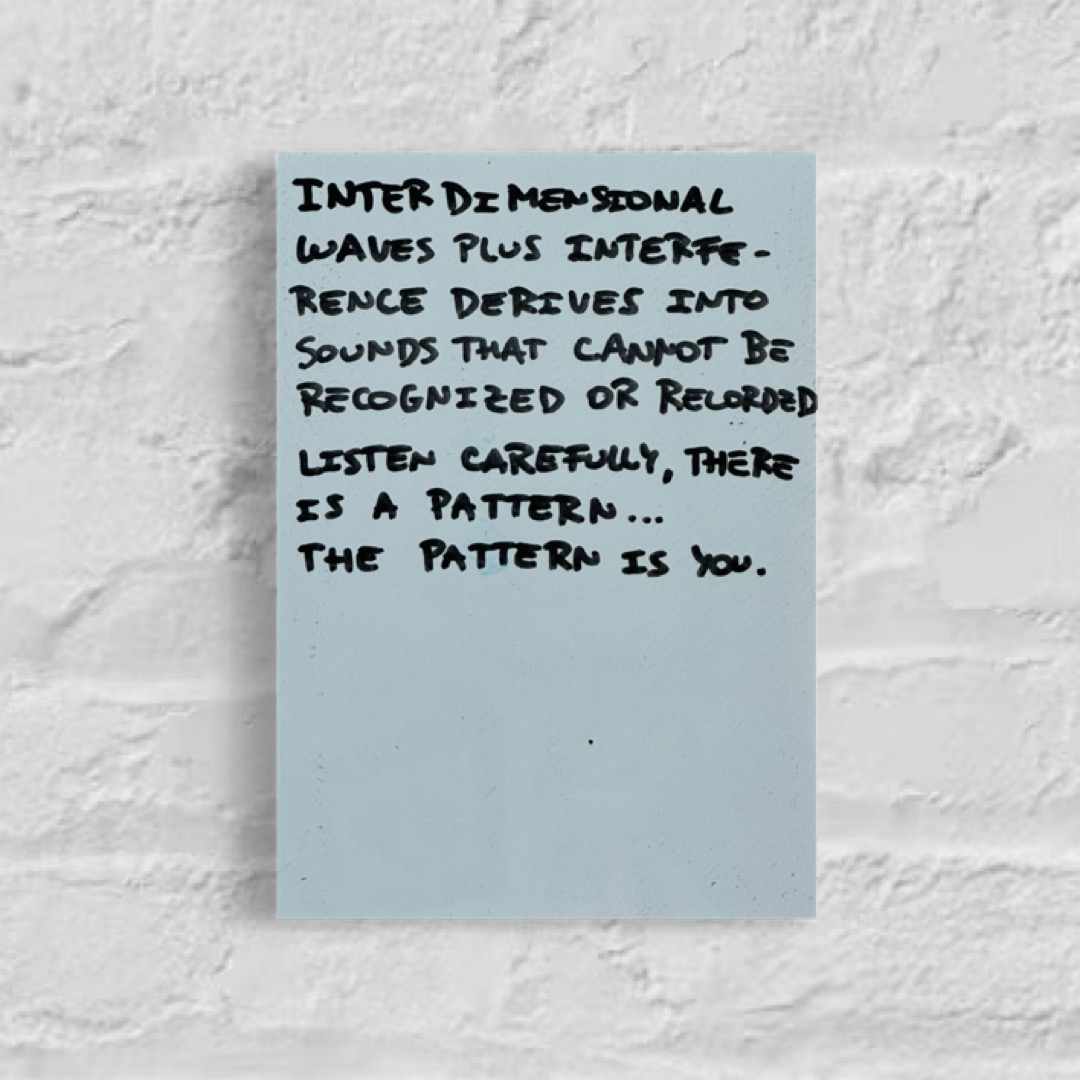 INTERDIMENSIONAL
WAVES PLUS INTERFE-
RENCE DERIVES INTO
SOUNDS THAT CANNOT BE
RECOGNIZED OR RECORDED
LISTEN CAREFULLY, THERE
IS A PATTERN...
THE PATTERN IS YOU.